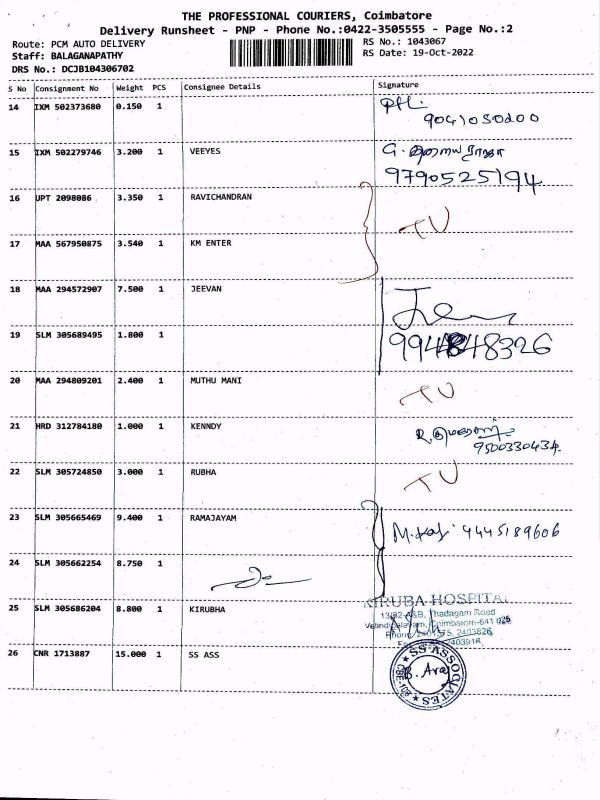 THE PROFESSIONAL COURIERS, Coimbatore
Delivery Runsheet - PNP - Phone No.:0422-3505555 - Page No.:2
Route: PCM AUTO DELIVERY
RS No.: 1043067
Staff: BALAGANAPATHY
RS Date: 19-Oct-2022
DRS No.: DCJB104306702
S No Consignment No Weight PCS Consignee Details Signature
14 IXM 502373680 0.150 1
9041050200
15 IXM 502279746 3.200 1 VEEYES G.
9790525194
16 UPT 2098086 3.350 1 RAVICHANDRAN
TU
17 MAA 567950875 3.540 1 KM ENTER
18 MAA 294572907 7.500 1 JEEVAN
19 SLM 305689495 1.800 1
20 MAA 294809201 2.400 1 MUTHU MANI TU
21 HRD 312784180 1.000 1 KENNDY
9500330434
22 SLM 305724850 3.000 1 RUBHA TU
23 SLM 305665469 9.400 1 RAMAJAYAM 4445189606
24 SLM 305662254 8.750 1
25 SLM 305686204 8.800 1 KIRUBHA
KIRUBHA HOSPITAL
Thadagam Road
Coimbatore-641 025
2403826
26 CNR 1713887 15.000 1 SS ASS
SS ASSOCIATES